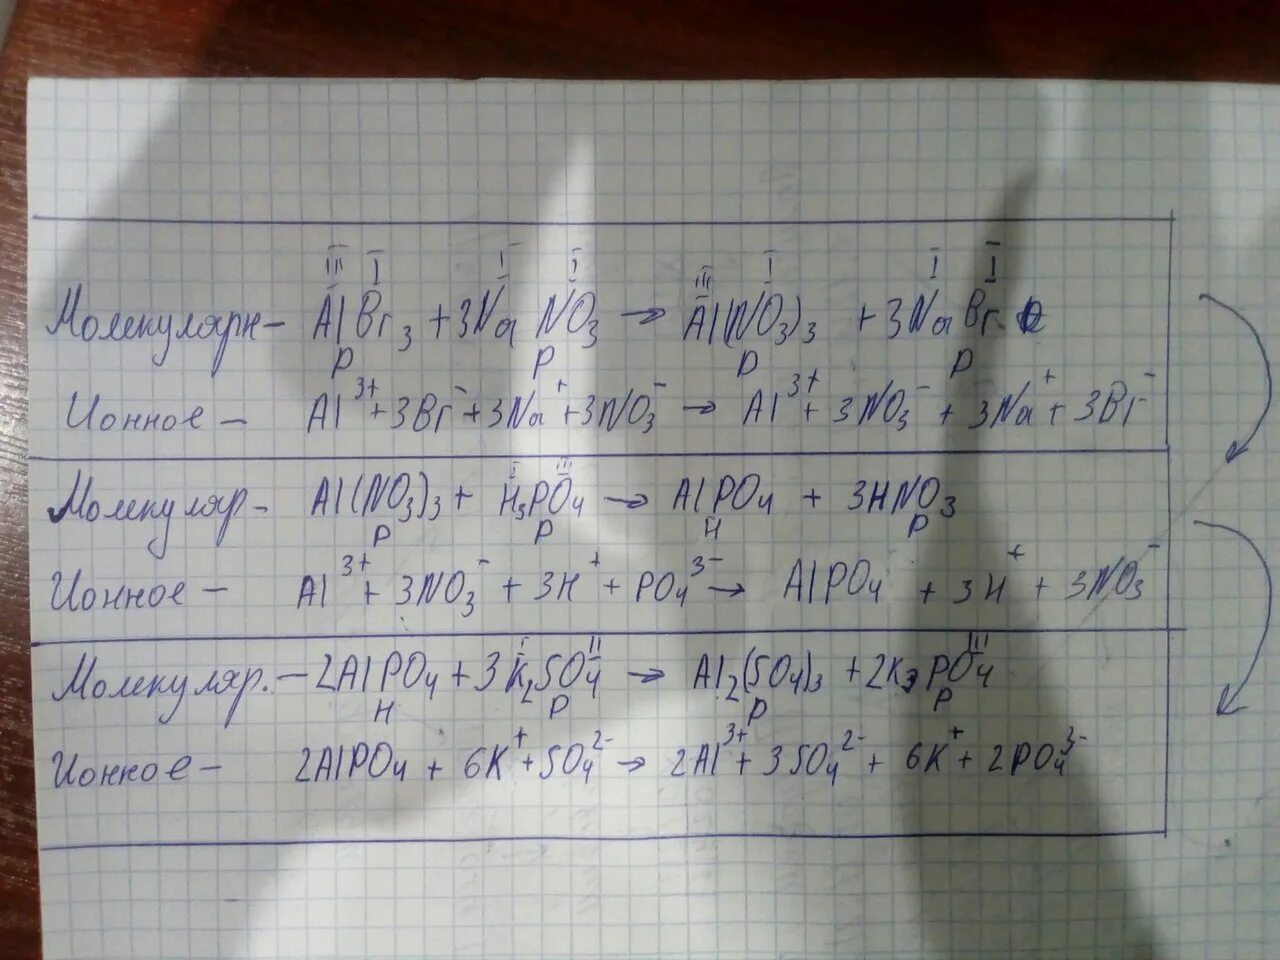 III I I I III I I I
Молекулярн – AlBr₃ + 3NaNO₃ → Al(NO₃)₃ + 3NaBr
р р р р
Ионное – Al³⁺ + 3Br⁻ + 3Na⁺ + 3NO₃⁻ → Al³⁺ + 3NO₃⁻ + 3Na⁺ + 3Br⁻
I III
Молекуляр – Al(NO₃)₃ + H₃PO₄ → AlPO₄ + 3HNO₃
р р н р
Ионное – Al³⁺ + 3NO₃⁻ + 3H⁺ + PO₄³⁻ → AlPO₄ + 3H⁺ + 3NO₃⁻
I II III
Молекуляр. – 2AlPO₄ + 3K₂SO₄ → Al₂(SO₄)₃ + 2K₃PO₄
н р р р
Ионное – 2AlPO₄ + 6K⁺ + SO₄²⁻ → 2Al³⁺ + 3SO₄²⁻ + 6K⁺ + 2PO₄³⁻